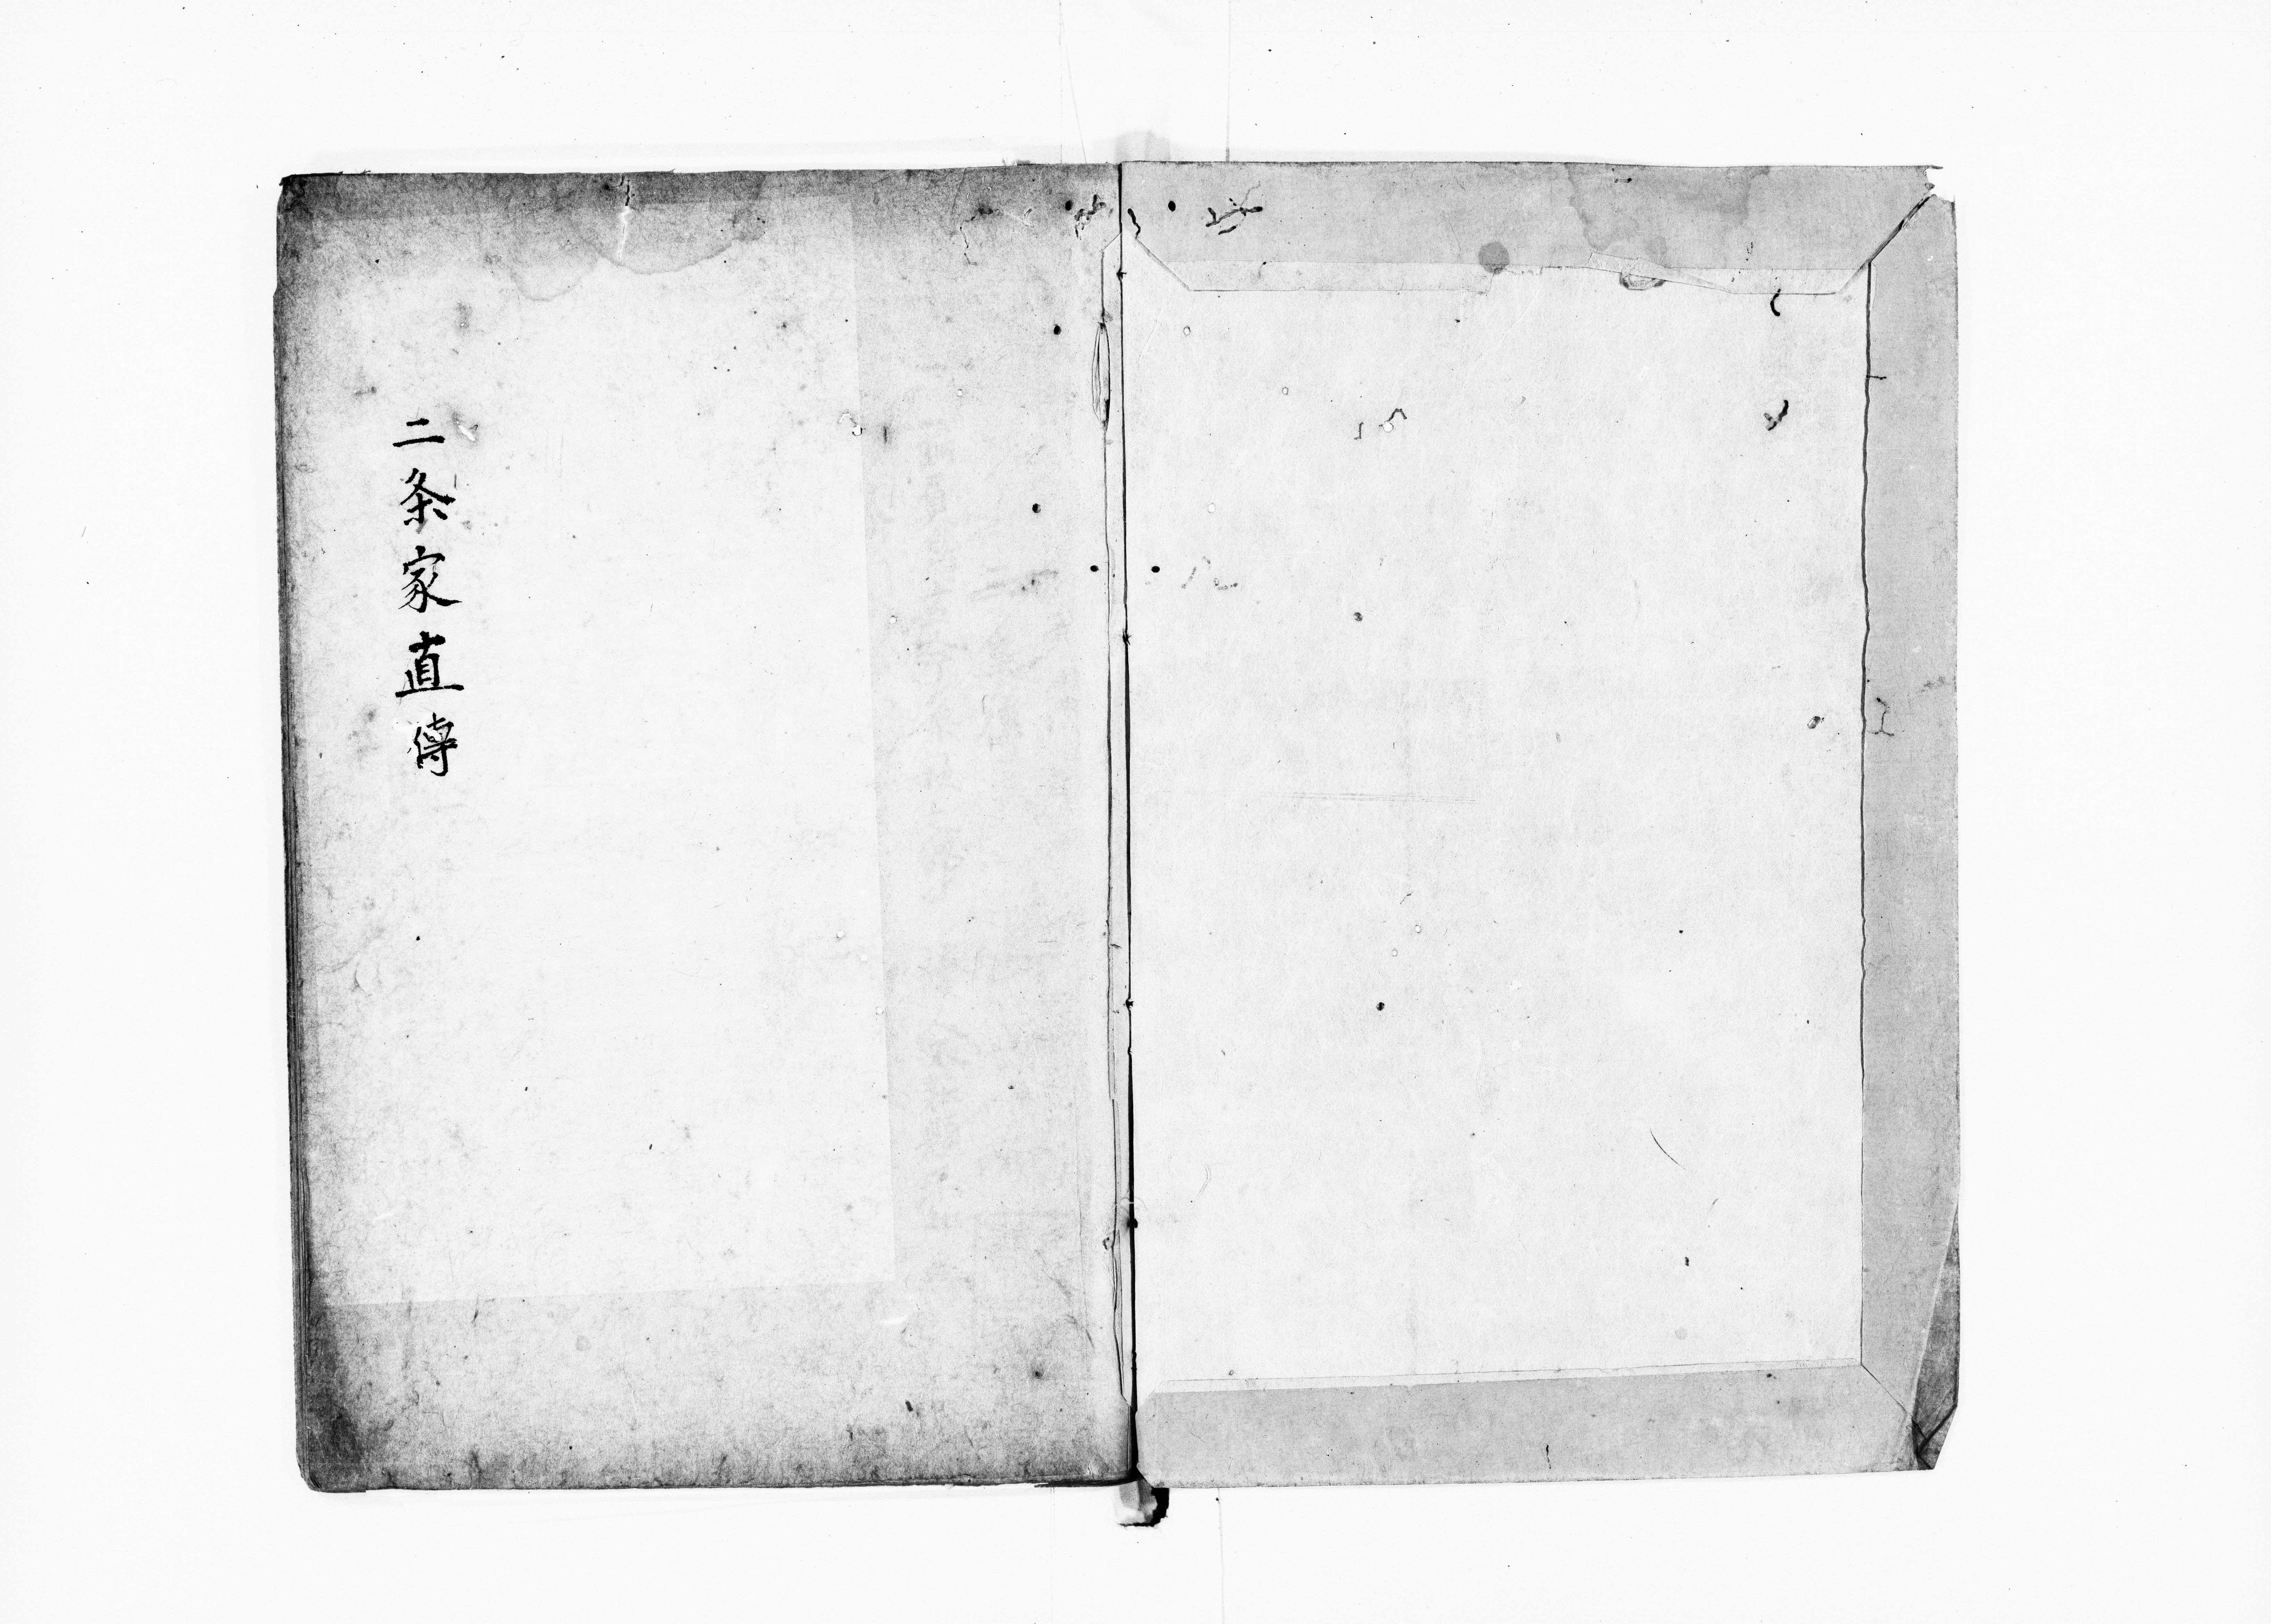 二条家直傳